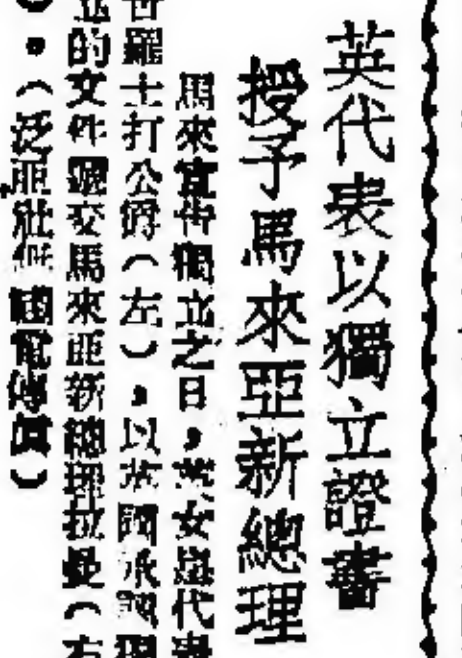 英代表以獨立證書
授予馬來亞新總理
馬來宣佈獨立之日，英女皇代表
告羅士打公爵（左），以英國承認
的文件遞交馬來亞新總理拉曼（右
）。（泛亞社 國電傳真）